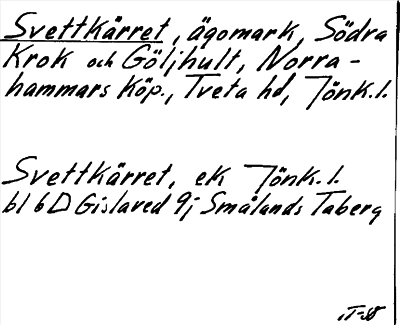 Svettkärret, ägomark, Södra
Krok och Göljhult, Norra-
hammars köp., Tveta hd, Jönk.l.
Svettkärret, ek Jönk.l.
bl 6D Gislaved 9j Smålands Taberg